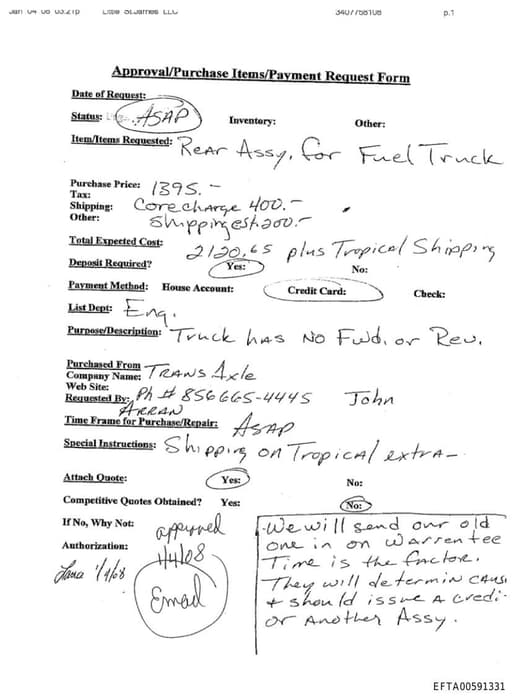 Jan 04 08 03:21p Little St.James LLC 3407758108 p.1
Approval/Purchase Items/Payment Request Form
Date of Request:
Status: ASAP Inventory: Other:
Item/Items Requested: Rear Assy. for Fuel Truck
Purchase Price: 1395.-
Tax:
Shipping: Corecharge 400.-
Other: Shipping est. 200.-
Total Expected Cost: 2120.65 plus Tropical Shipping
Deposit Required? Yes: No:
Payment Method: House Account: Credit Card: Check:
List Dept: Eng.
Purpose/Description: Truck has NO Fwd. or Rev.
Purchased From
Company Name: TRANS Axle
Web Site:
Requested By: Ph # 856 665-4445 John
ARRAN
Time Frame for Purchase/Repair: ASAP
Special Instructions: Shipping on Tropical extra-
Attach Quote: Yes: No:
Competitive Quotes Obtained? Yes: No:
If No, Why Not: approved
1/4/08
Authorization:
1/4/08
Email
We will send our old
one in on Warrentee
Time is the factor.
They will determin caus
+ should issue a credi
or Another Assy.
EFTA00591331